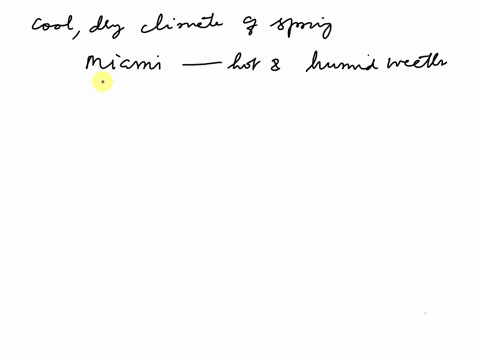 cool, dry climate of spring
Miami — hot & humid weather